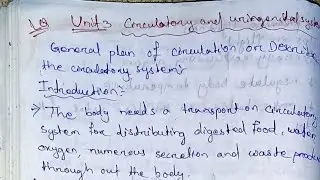 19 Unit3 Circulatory and urinogenital system
General plan of circulation or Describe
the circulatory system:
Introduction:-
→ The body needs a transport or circulatory
system for distributing digested food, water
oxygen, numerous secretion and waste produc
through out the body.